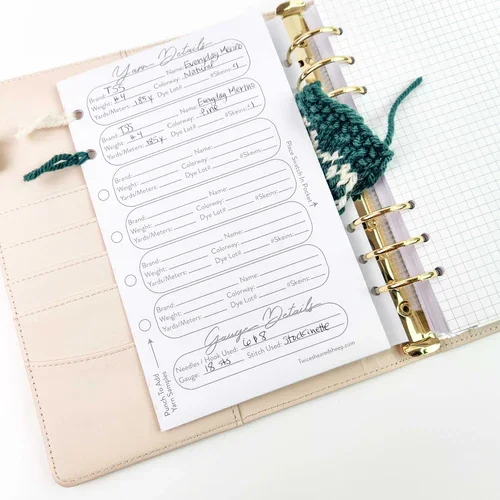 Yarn Details
Brand: TSS Name: Everyday Merino
Weight: #4 Colorway: Natural
Yards/Meters: 185x Dye Lot# #Skeins: 1
Brand: TSS Name: Everyday Merino
Weight: #4 Colorway: Pine
Yards/Meters: 185x Dye Lot# #Skeins: 1
Brand: Name:
Weight: Colorway:
Yards/Meters: Dye Lot# #Skeins:
Brand: Name:
Weight: Colorway:
Yards/Meters: Dye Lot# #Skeins:
Brand: Name:
Weight: Colorway:
Yards/Meters: Dye Lot# #Skeins:
Brand: Name:
Weight: Colorway:
Yards/Meters: Dye Lot# #Skeins:
Place Swatch In Pocket
Gauge Details
Needles / Hook Used: 6 & 8
Gauge: 18 sts Stitch Used: Stockinette
Punch To Add
Yarn Samples